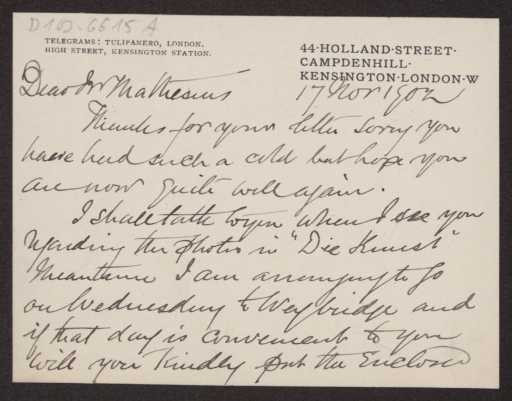 D 102-6615 A
TELEGRAMS: TULIPANERO, LONDON.
HIGH STREET, KENSINGTON STATION.
44·HOLLAND·STREET·
CAMPDENHILL·
KENSINGTON·LONDON·W
17 Nov 1902
Dear Mr Mathesius
Thanks for your letter sorry you
have had such a cold but hope you
are now quite well again.
I shall talk to you when I see you
regarding the photos in "Die Kunst"
Meantime I am arranging to go
on Wednesday to Weybridge and
if that day is convenient to you
will you kindly put the Enclosed